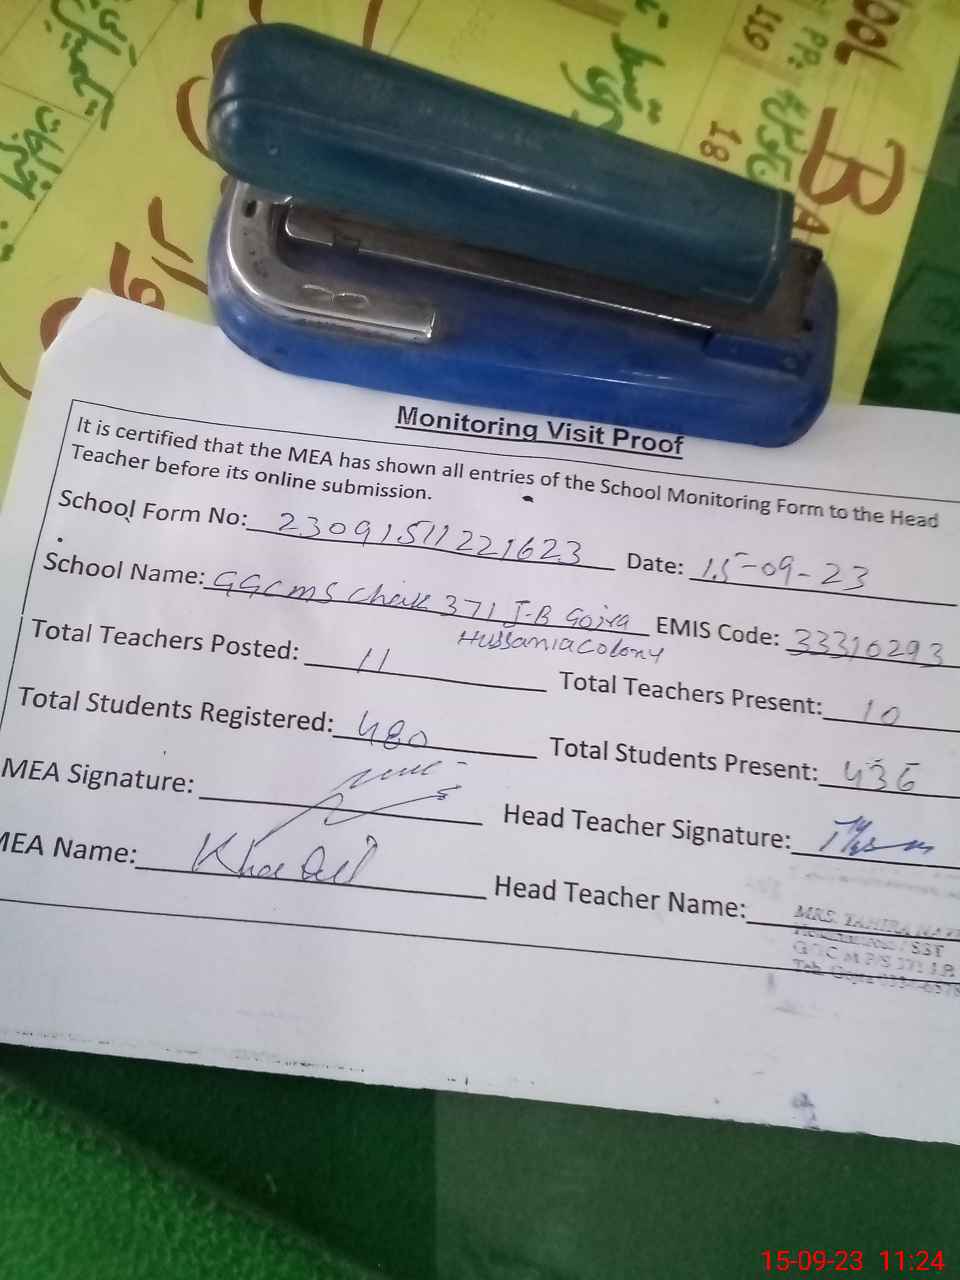 18
Monitoring Visit Proof
It is certified that the MEA has shown all entries of the School Monitoring Form to the Head
Teacher before its online submission.
School Form No: 23091511221623 Date: 15-09-23
School Name: GGCMS Chak 371 J-B Gojra EMIS Code: 33310293
Hussania Colony
Total Teachers Posted: 11 Total Teachers Present: 10
Total Students Registered: 480 Total Students Present: 436
MEA Signature: Head Teacher Signature:
MEA Name: Head Teacher Name:
MRS. TAHIRA
/ SST
371 J.B
15-09-23 11:24